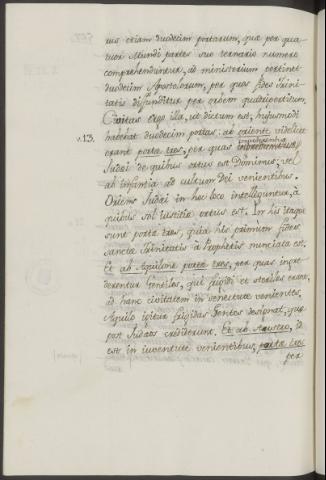 uis etiam duodecim portarum, quæ per qua
tuor Mundi partes suo ternario numero
comprehenduntur, ad ministerium pertinet
duodecim Apostolorum, per quos fides Trini
tatis diffunditur per orbem quadripartitum.
Civitas ergo illa, ut dictum est, hujusmodi
habebat duodecim portas: ab oriente videlicet
v. 13. erant portæ tres, per quas
Judæi de quibus ortus est Dominus; vel
ab infantia ad cultum Dei venientibus.
Oriens Judæi in hoc loco intelliguntur, à
quibus sol Justitiæ ortus est. In his itaque
sunt portæ tres, quia his primum fides
sanctæ Trinitatis à Prophetis nunciata est.
Et ab Aquilone portæ tres, per quas ingre
derentur Gentiles, qui frigidi et steriles erant,
ad hanc civitatem in senectute venientes.
Aquilo igitur frigidas Gentes designat, quæ
post Judæos crediderunt. Et ab Austro, id
est in juventute venientibus, portæ tres
per